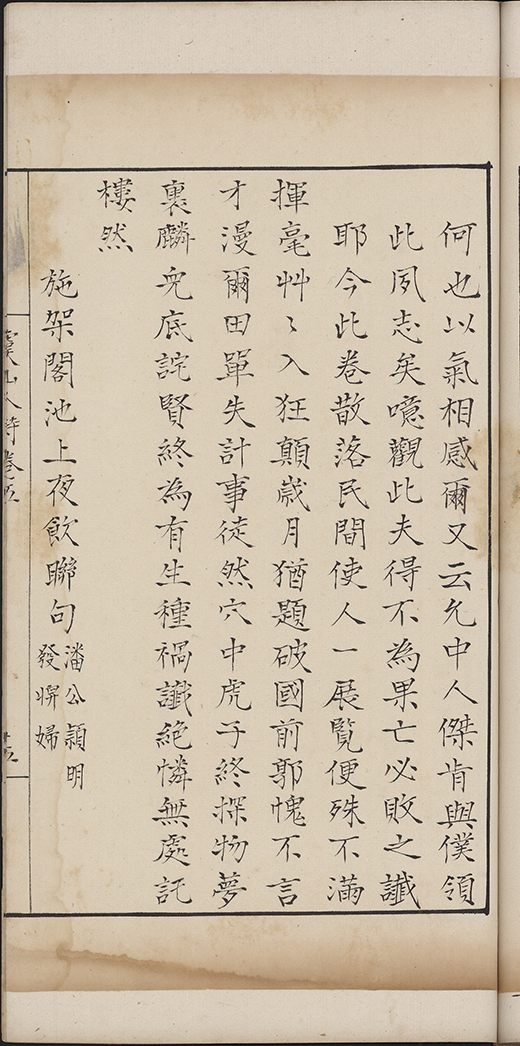 何也以氣相感爾又云允中人傑肯與僕領
此夙志矣噫觀此夫得不為果亡必敗之讖
耶今此卷散落民間使人一展覧便殊不滿
揮毫艸〻入狂顛歲月猶題破國前郭愧不言
才漫爾田單失計事徒然穴中虎子終探物夢
裏麟兒底詫賢終為有生種禍讖絶憐無處託
樓然
施架閣池上夜飲聯句
潘公頴明
發
婦
山人詩卷五